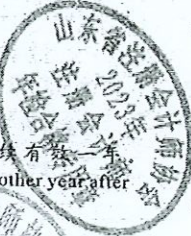 山东省注册会计师协会
2023年
注册会计师
年检合格专用章
续有效一年
other year after